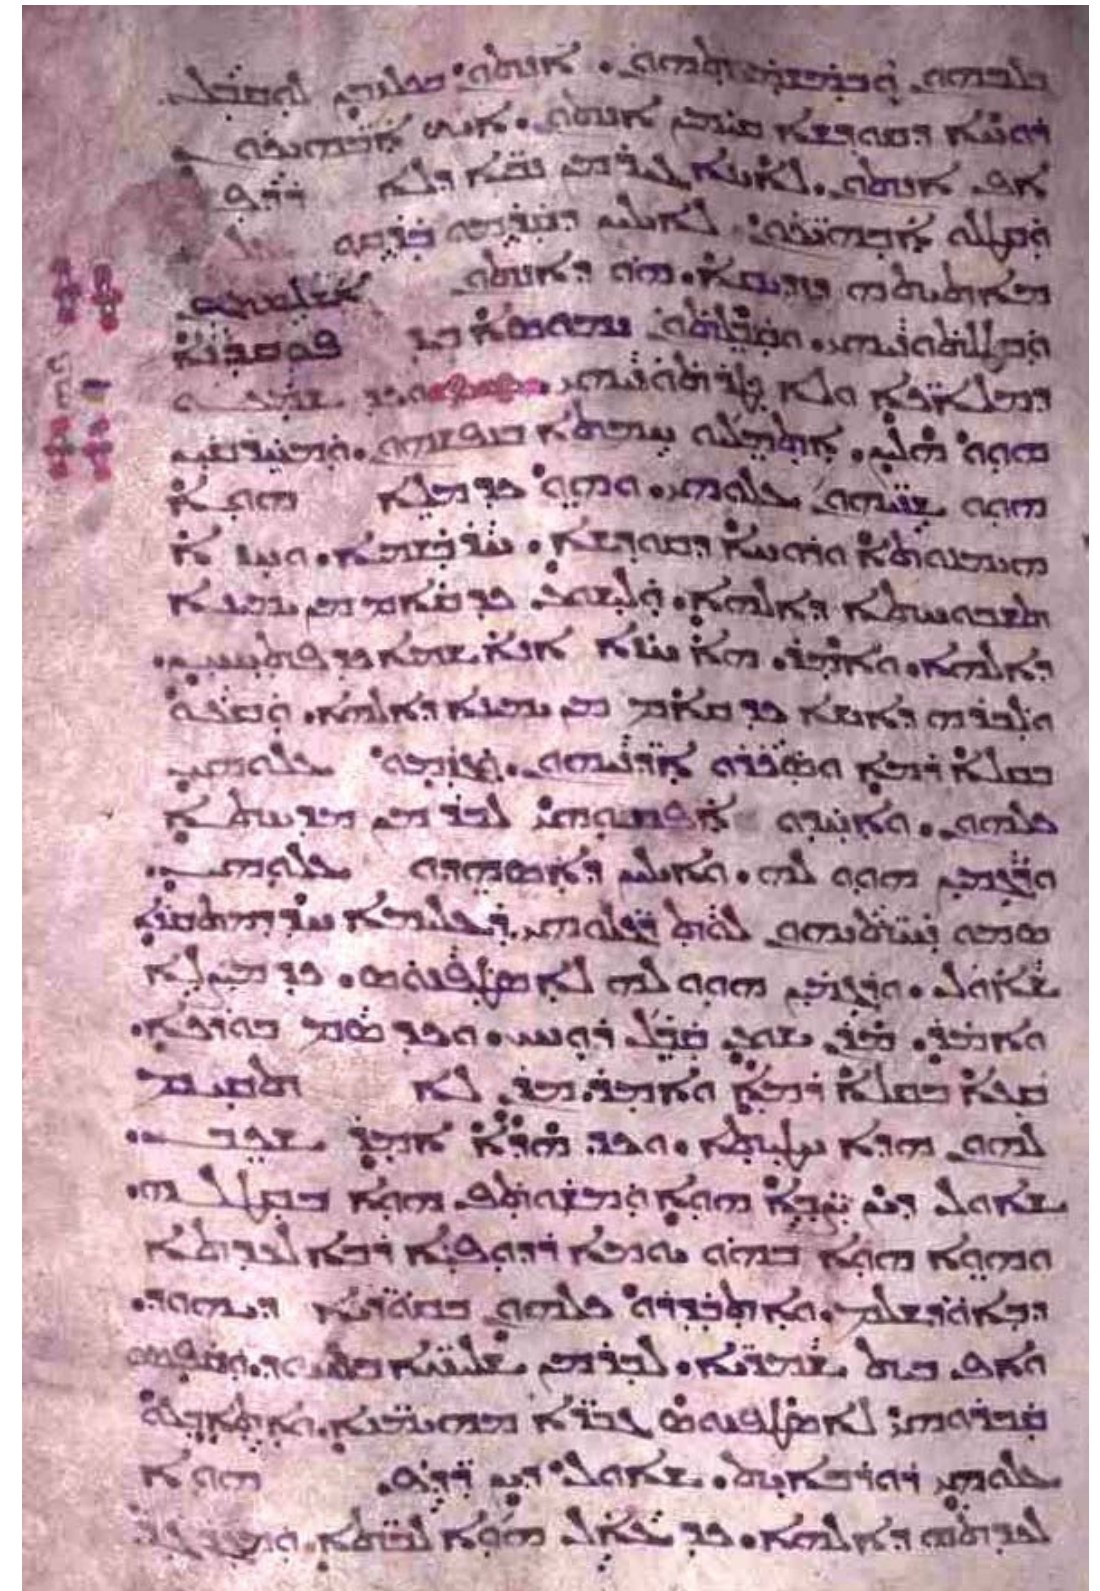 ܒܠܒܗܘܢ ܘܒܡܫܡܥܬܗܘܢ. ܐܢܬܘܢ ܒܟܠܙܒܢ ܠܘܩܒܠ
ܪܘܚܐ ܕܩܘܕܫܐ ܩܝܡܝܢ ܐܢܬܘܢ. ܐܝܟ ܐܒܗܝܟܘܢ
ܐܦ ܐܢܬܘܢ. ܠܐܝܢܐ ܓܝܪ ܡܢ ܢܒܝܐ ܕܠܐ ܪܕܦܘ
ܘܩܛܠܘ ܐܒܗܝܟܘܢ. ܠܐܝܠܝܢ ܕܩܕܡܘ ܒܕܩܘ
ܡܐܬܝܬܗ ܕܙܕܝܩܐ. ܗܘ ܕܐܢܬܘܢ ܐܫܠܡܬܘܢ
ܘܩܛܠܬܘܢܝܗܝ. ܘܩܒܠܬܘܢ ܢܡܘܣܐ ܒܝܕ ܦܘܩܕܢܐ
ܕܡܠܐܟܐ ܘܠܐ ܢܛܪܬܘܢܝܗܝ. ܘܟܕ ܫܡܥܘ
ܗܘܘ ܗܠܝܢ. ܐܬܡܠܝܘ ܚܡܬܐ ܒܢܦܫܗܘܢ. ܘܡܚܪܩܝܢ
ܗܘܘ ܫܢܝܗܘܢ ܥܠܘܗܝ. ܘܗܘ ܟܕ ܡܠܐ ܗܘܐ
ܗܝܡܢܘܬܐ ܘܪܘܚܐ ܕܩܘܕܫܐ. ܚܪ ܒܫܡܝܐ. ܘܚܙܐ
ܬܫܒܘܚܬܐ ܕܐܠܗܐ. ܘܠܝܫܘܥ ܟܕ ܩܐܡ ܡܢ ܝܡܝܢܐ
ܕܐܠܗܐ. ܘܐܡܪ. ܗܐ ܚܙܐ ܐܢܐ ܫܡܝܐ ܟܕ ܦܬܝܚܝܢ.
ܘܠܒܪܗ ܕܐܢܫܐ ܟܕ ܩܐܡ ܡܢ ܝܡܝܢܐ ܕܐܠܗܐ. ܘܩܥܘ
ܒܩܠܐ ܪܡܐ ܘܣܟܪܘ ܐܕܢܝܗܘܢ. ܘܓܙܡܘ ܥܠܘܗܝ
ܟܠܗܘܢ. ܘܐܚܕܘ ܐܦܩܘܗܝ ܠܒܪ ܡܢ ܡܕܝܢܬܐ
ܘܪܓܡܝܢ ܗܘܘ ܠܗ. ܘܐܝܠܝܢ ܕܐܣܗܕܘ ܥܠܘܗܝ.
ܣܡܘ ܢܚܬܝܗܘܢ ܠܘܬ ܪܓܠܘܗܝ ܕܥܠܝܡܐ ܚܕ ܕܡܬܩܪܐ
ܫܐܘܠ. ܘܪܓܡܝܢ ܗܘܘ ܠܗ ܠܐܣܛܦܢܘܣ. ܟܕ ܡܨܠܐ
ܘܐܡܪ. ܡܪܢ ܝܫܘܥ ܩܒܠ ܪܘܚܝ. ܘܟܕ ܣܡ ܒܘܪܟܐ.
ܩܥܐ ܒܩܠܐ ܪܡܐ ܘܐܡܪ. ܡܪܢ ܠܐ ܬܩܝܡ
ܠܗܘܢ ܗܕܐ ܚܛܝܬܐ. ܘܟܕ ܗܕܐ ܐܡܪ ܫܟܒ.
ܫܐܘܠ ܕܝܢ ܨܒܐ ܗܘܐ ܘܡܫܘܬܦ ܗܘܐ ܒܩܛܠܗ.
ܘܗܘܐ ܗܘܐ ܒܗܘ ܝܘܡܐ ܪܕܘܦܝܐ ܪܒܐ ܠܥܕܬܐ
ܕܒܐܘܪܫܠܡ. ܘܐܬܒܕܪܘ ܟܠܗܘܢ ܒܩܘܪܝܐ ܕܝܗܘܕ.
ܘܐܦ ܒܝܬ ܫܡܪܝܐ. ܠܒܪ ܡܢ ܫܠܝܚܐ ܒܠܚܘܕ.
ܩܒܪܘܗܝ ܠܐܣܛܦܢܘܣ ܓܒܪܐ ܡܗܝܡܢܐ. ܘܐܬܐܒܠܘ
ܥܠܘܗܝ ܪܘܪܒܐܝܬ. ܫܐܘܠ ܕܝܢ ܪܕܦ ܗܘܐ
ܠܥܕܬܗ ܕܐܠܗܐ. ܟܕ ܥܐܠ ܗܘܐ ܠܒܬܐ.